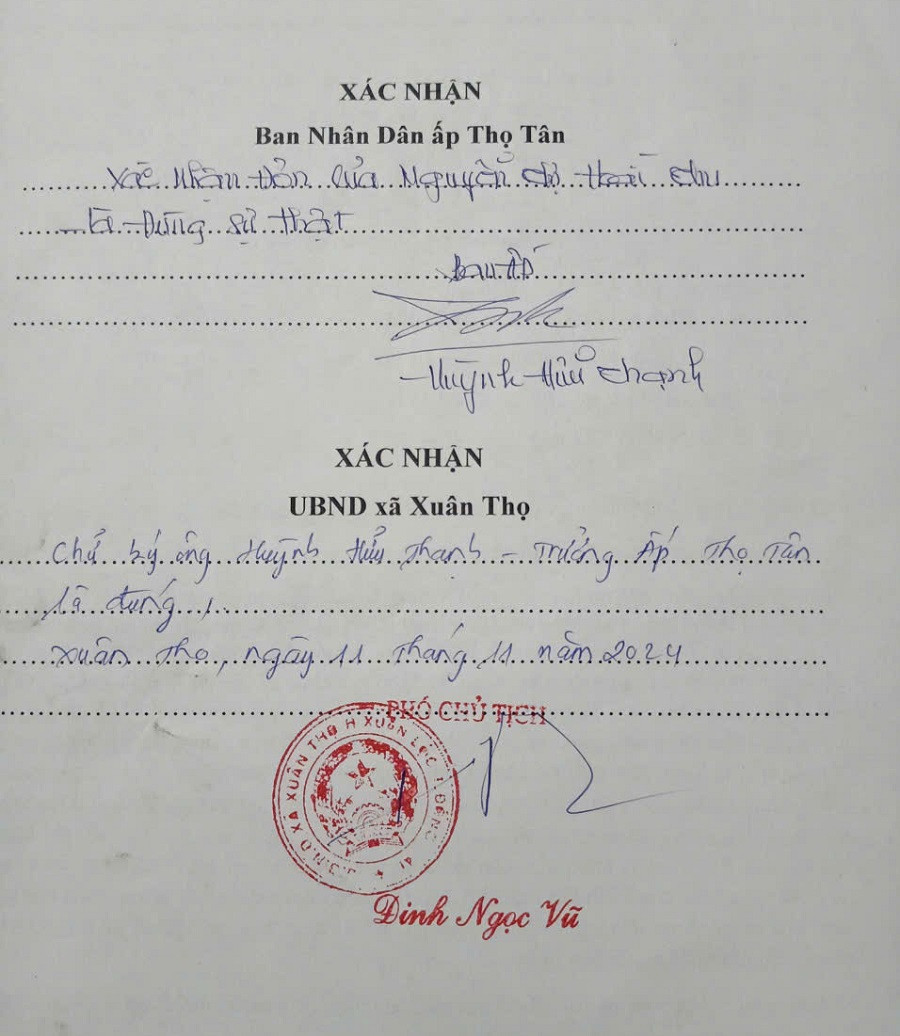 XÁC NHẬN
Ban Nhân Dân ấp Thọ Tân
Xác Nhận Đơn Của Nguyễn Thị Hoài Thu
Là Đúng sự thật
Ban Ấp
Huỳnh Hữu Thạnh
XÁC NHẬN
UBND xã Xuân Thọ
Chữ ký ông Huỳnh Hữu Thạnh - Trưởng Ấp Thọ Tân
là đúng,
Xuân Thọ, ngày 11 tháng 11 năm 2024
PHÓ CHỦ TỊCH
U.B.N.D XÃ XUÂN THỌ H XUÂN LỘC T ĐỒNG NAI
Đinh Ngọc Vũ